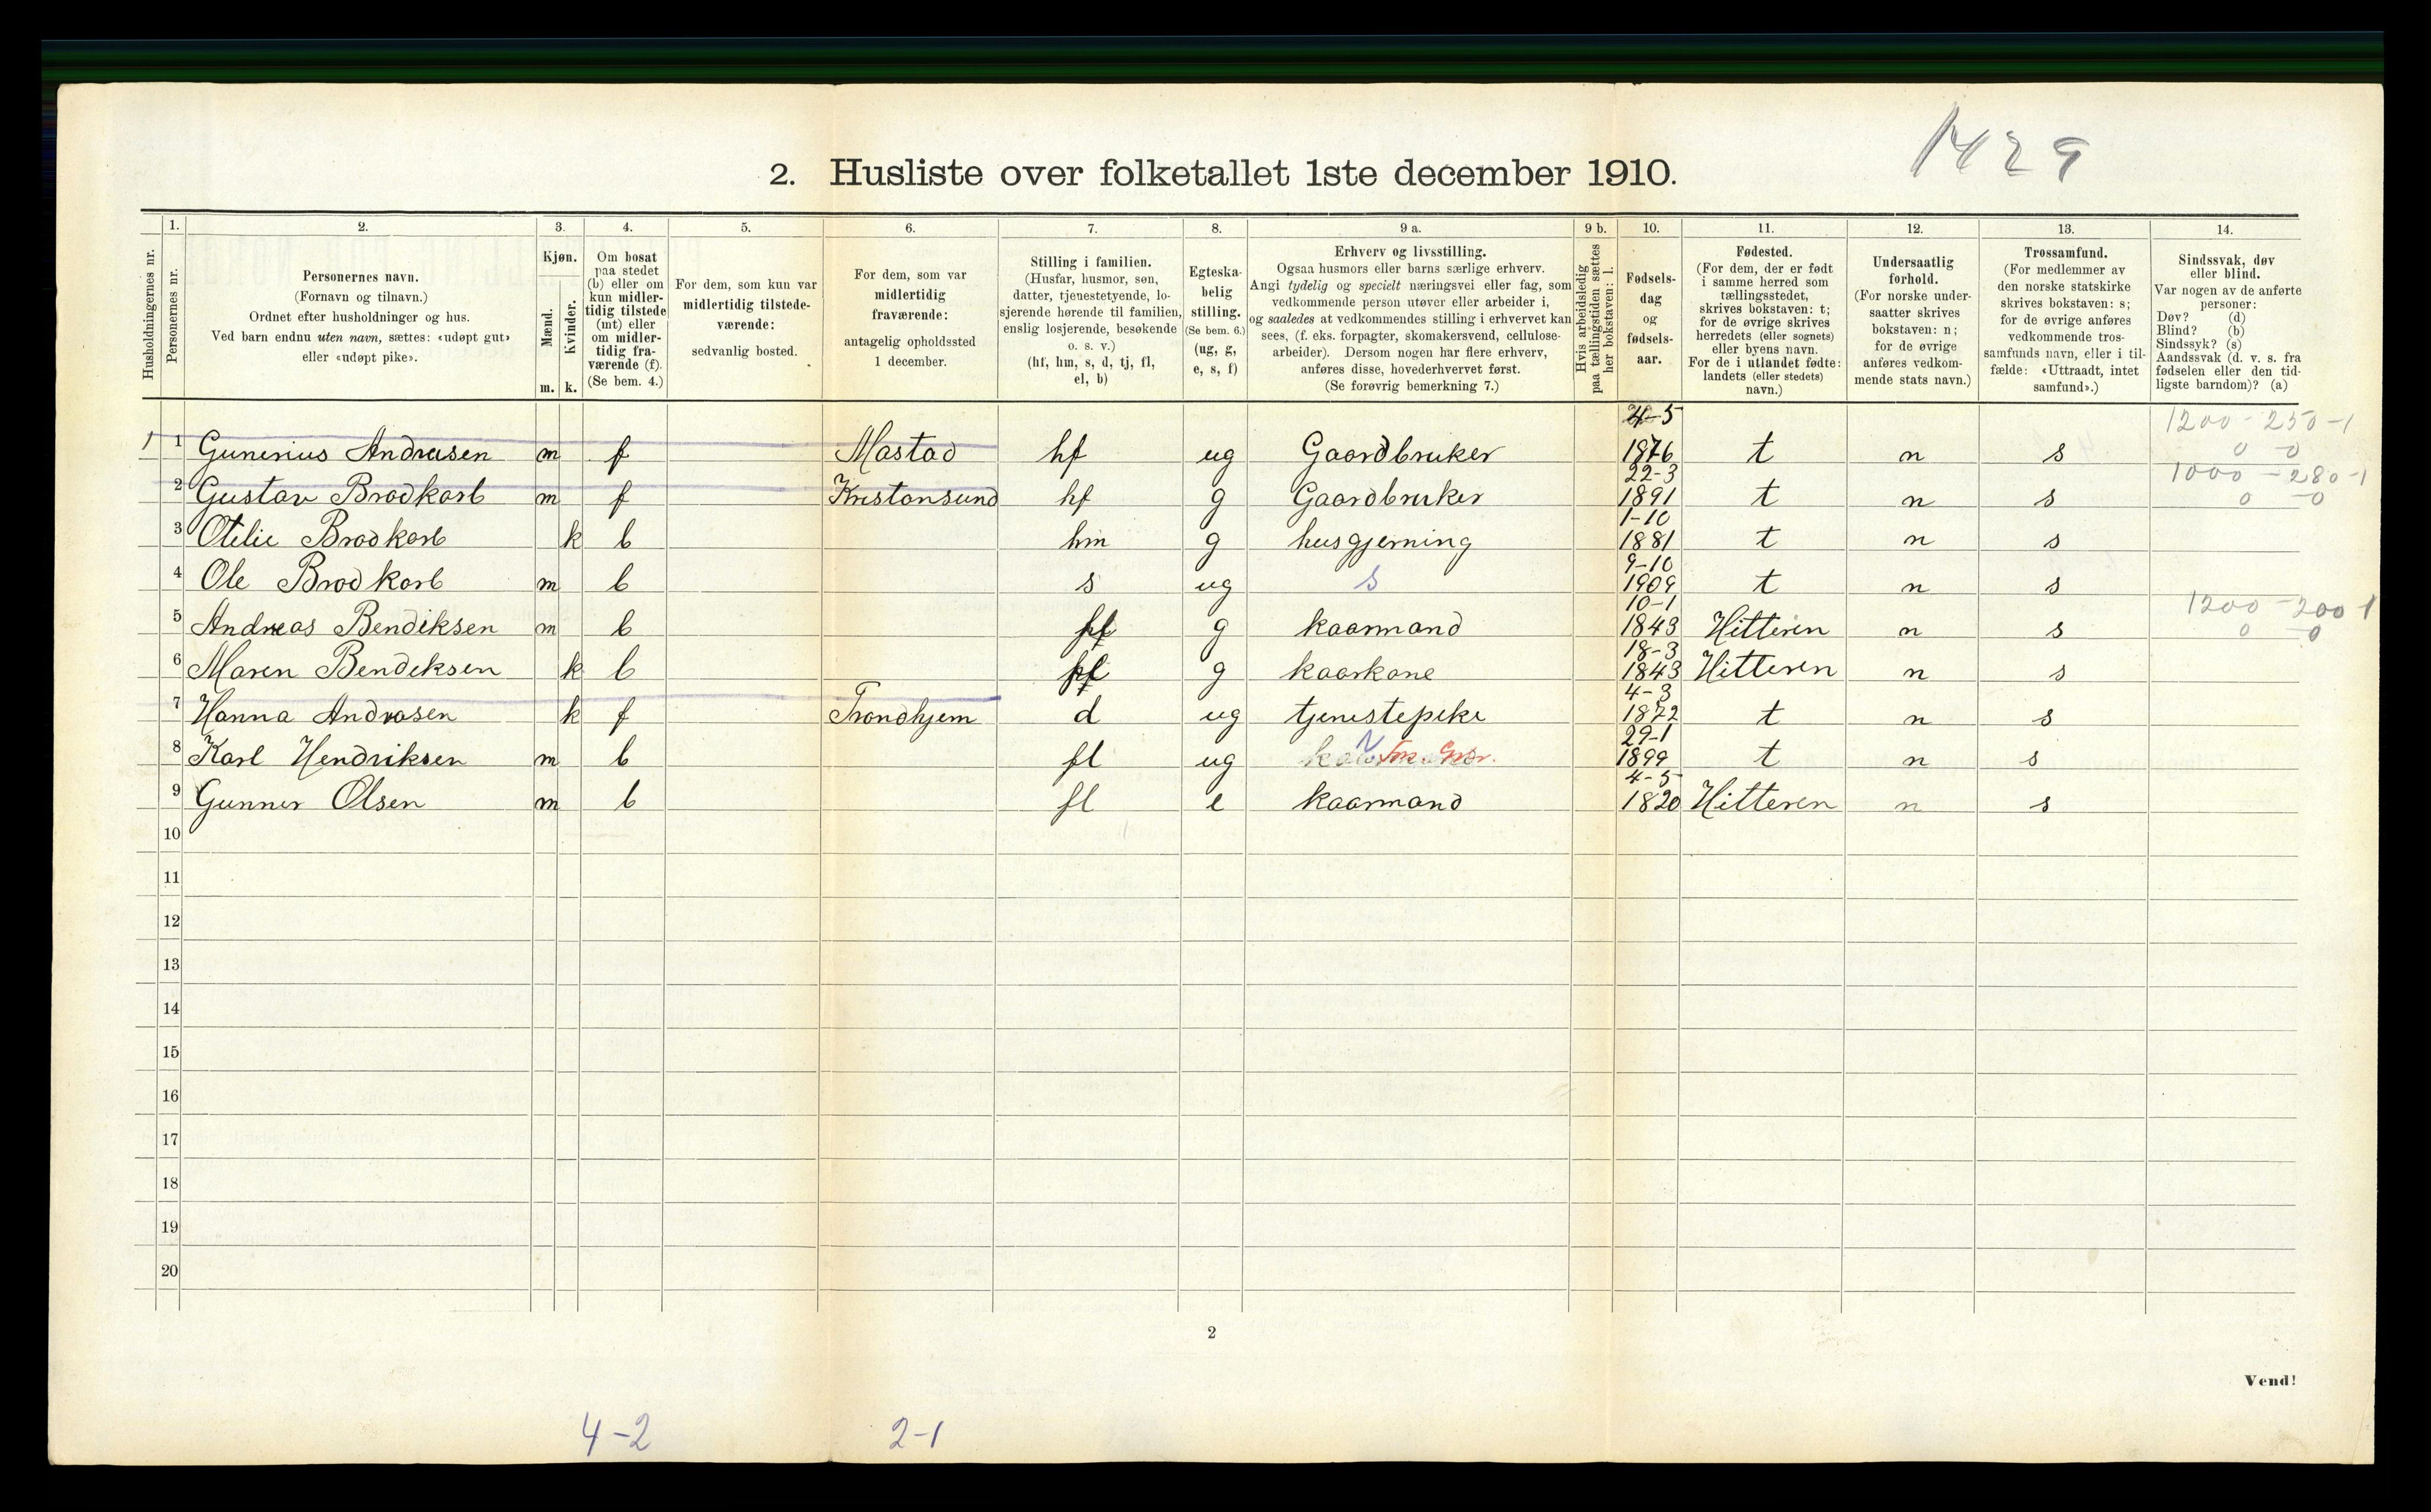 1429
2. Husliste over folketallet 1ste december 1910.
Husholdningernes nr.
1.
Personernes nr.
2.
Personernes navn.
(Fornavn og tilnavn.)
Ordnet efter husholdninger og hus.
Ved barn endnu uten navn, sættes: «udøpt gut»
eller «udøpt pike».
3.
Kjøn.
Mænd.
Kvinder.
m. k.
4.
Om bosat
paa stedet
(b) eller om
kun midler-
tidig tilstede
(mt) eller
om midler-
tidig fra-
værende (f).
(Se bem. 4.)
5.
For dem, som kun var
midlertidig tilstede-
værende:
sedvanlig bosted.
6.
For dem, som var
midlertidig
fraværende:
antagelig opholdssted
1 december.
7.
Stilling i familien.
(Husfar, husmor, søn,
datter, tjenestetyende, lo-
sjerende hørende til familien,
enslig losjerende, besøkende
o. s. v.)
(hf, hm, s, d, tj, fl,
el, b)
8.
Egteska-
belig
stilling.
(Se bem. 6.)
(ug, g,
e, s, f)
9 a.
Erhverv og livsstilling.
Ogsaa husmors eller barns særlige erhverv.
Angi tydelig og specielt næringsvei eller fag, som
vedkommende person utøver eller arbeider i,
og saaledes at vedkommendes stilling i erhvervet kan
sees, (f. eks. forpagter, skomakersvend, cellulose-
arbeider). Dersom nogen har flere erhverv,
anføres disse, hovederhvervet først.
(Se forøvrig bemerkning 7.)
9 b.
Hvis arbeidsledig
paa tællingstiden sættes
her bokstaven: l.
10.
Fødsels-
dag
og
fødsels-
aar.
11.
Fødested.
(For dem, der er født
i samme herred som
tællingsstedet,
skrives bokstaven: t;
for de øvrige skrives
herredets (eller sognets)
eller byens navn.
For de i utlandet fødte:
landets (eller stedets)
navn.)
12.
Undersaatlig
forhold.
(For norske under-
saatter skrives
bokstaven: n;
for de øvrige
anføres vedkom-
mende stats navn.)
13.
Trossamfund.
(For medlemmer av
den norske statskirke
skrives bokstaven: s;
for de øvrige anføres
vedkommende tros-
samfunds navn, eller i til-
fælde: «Uttraadt, intet
samfund».)
14.
Sindssvak, døv
eller blind.
Var nogen av de anførte
personer:
Døv? (d)
Blind? (b)
Sindssyk? (s)
Aandssvak (d. v. s. fra
fødselen eller den tid-
ligste barndom)? (a)
4-5 1200-250-1
1 1 Gunerius Andreasen m f Mastad hf ug Gaardbruker 1876 t n s 0 0
22-3 1000-280-1
2 Gustav Brodkorb m f Kristansund hf g Gaardbruker 1891 t n s 0 0
1-10
3 Otelie Brodkorb k b hm g husgjerning 1881 t n s
9-10
4 Ole Brodkorb m b s ug s 1909 t n s
10-1 1200-200 1
5 Andreas Bendiksen m b g kaarmand 1843 Hitteren n s 0 0
18-3
6 Maren Bendiksen k b g kaarkone 1843 Hitteren n s
4-3
7 Hanna Andrasen k f Trondhjem d ug tjenestepike 1872 t n s
29-1
8 Karl Hendriksen m b fl ug 1899 t n s
4-5
9 Gunner Olsen m b fl e kaarmand 1820 Hitteren n s
10
11
12
13
14
15
16
17
18
19
20
2
Vend!
4-2 2-1